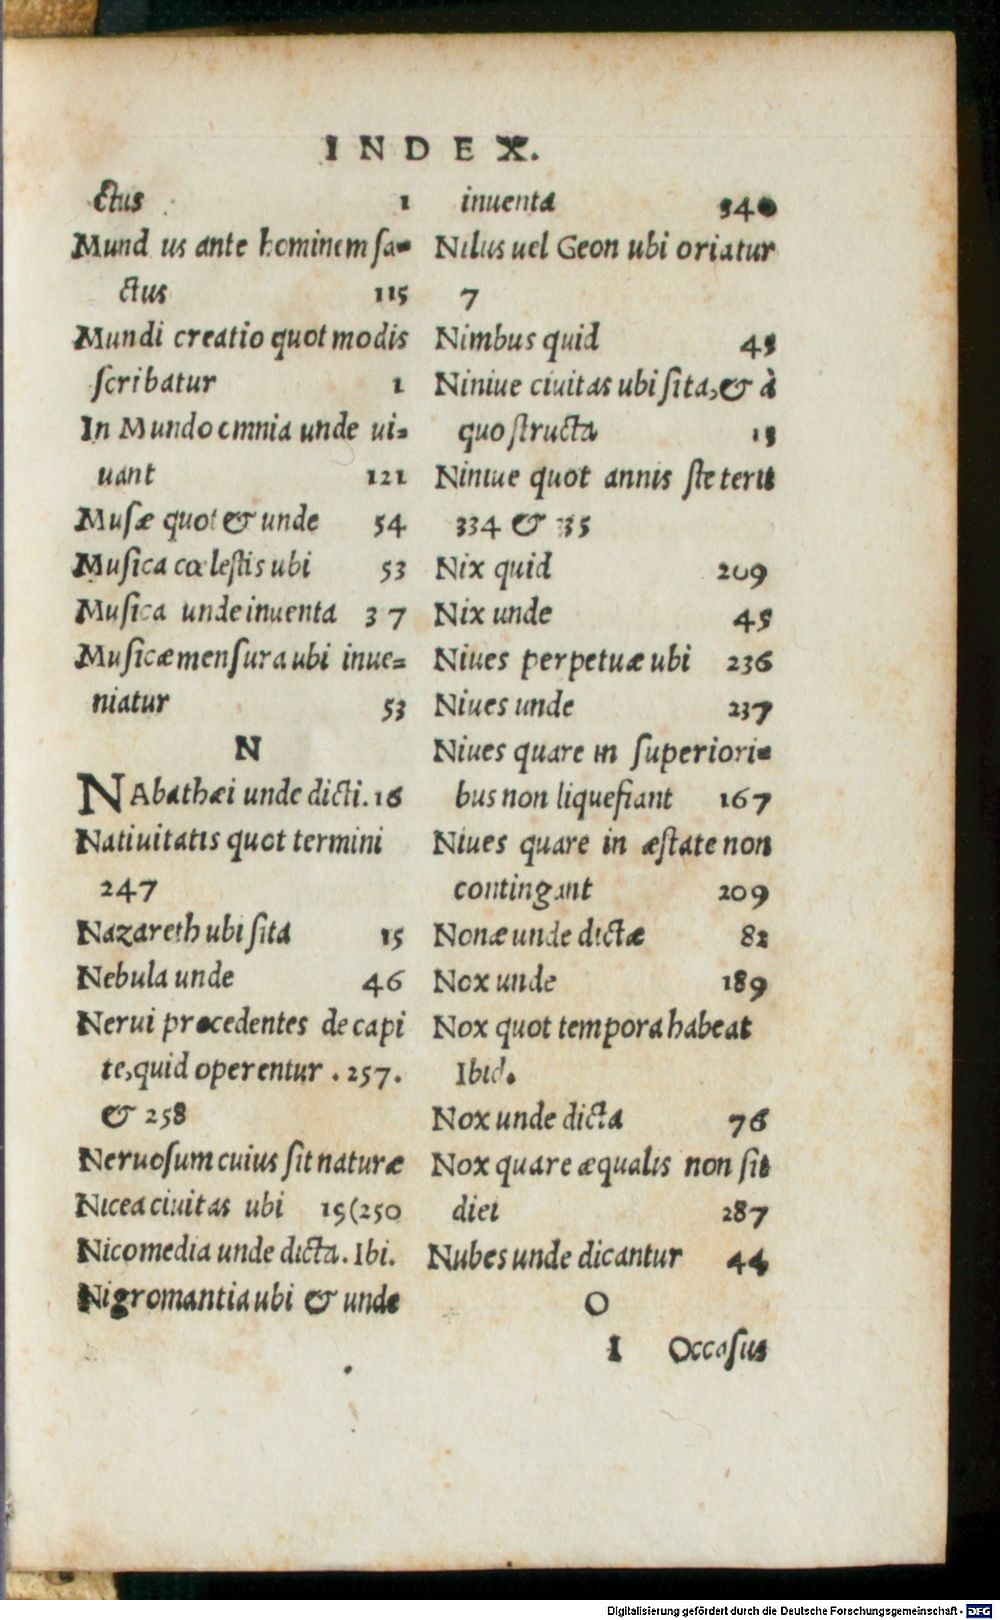 INDEX.
ctus 1
Mundus ante hominem fa-
ctus 115
Mundi creatio quot modis
ſcribatur 1
In Mundo omnia unde ui-
uant 121
Muſæ quot & unde 54
Muſica cœleſtis ubi 53
Muſica unde inuenta 37
Muſicæ menſura ubi inue-
niatur 53
N
NAbathæi unde dicti. 16
Natiuitatis quot termini
247
Nazareth ubi ſita 15
Nebula unde 46
Nerui procedentes de capi
te, quid operentur . 257.
& 258
Neruoſum cuius ſit naturæ
Nicea ciuitas ubi 15 (250
Nicomedia unde dicta. Ibi.
Nigromantia ubi & unde
inuenta 340
Nilus uel Geon ubi oriatur
7
Nimbus quid 45
Niniue ciuitas ubi ſita, & à
quo ſtructa 15
Niniue quot annis ſteterit
334 & 335
Nix quid 209
Nix unde 45
Niues perpetuæ ubi 236
Niues unde 237
Niues quare in ſuperiori-
bus non liquefiant 167
Niues quare in æſtate non
contingant 209
Nonæ unde dictæ 82
Nox unde 189
Nox quot tempora habeat
Ibid.
Nox unde dicta 76
Nox quare æqualis non ſit
diei 287
Nubes unde dicantur 44
O
I Occaſus
Digitalisierung gefördert durch die Deutsche Forschungsgemeinschaft - DFG